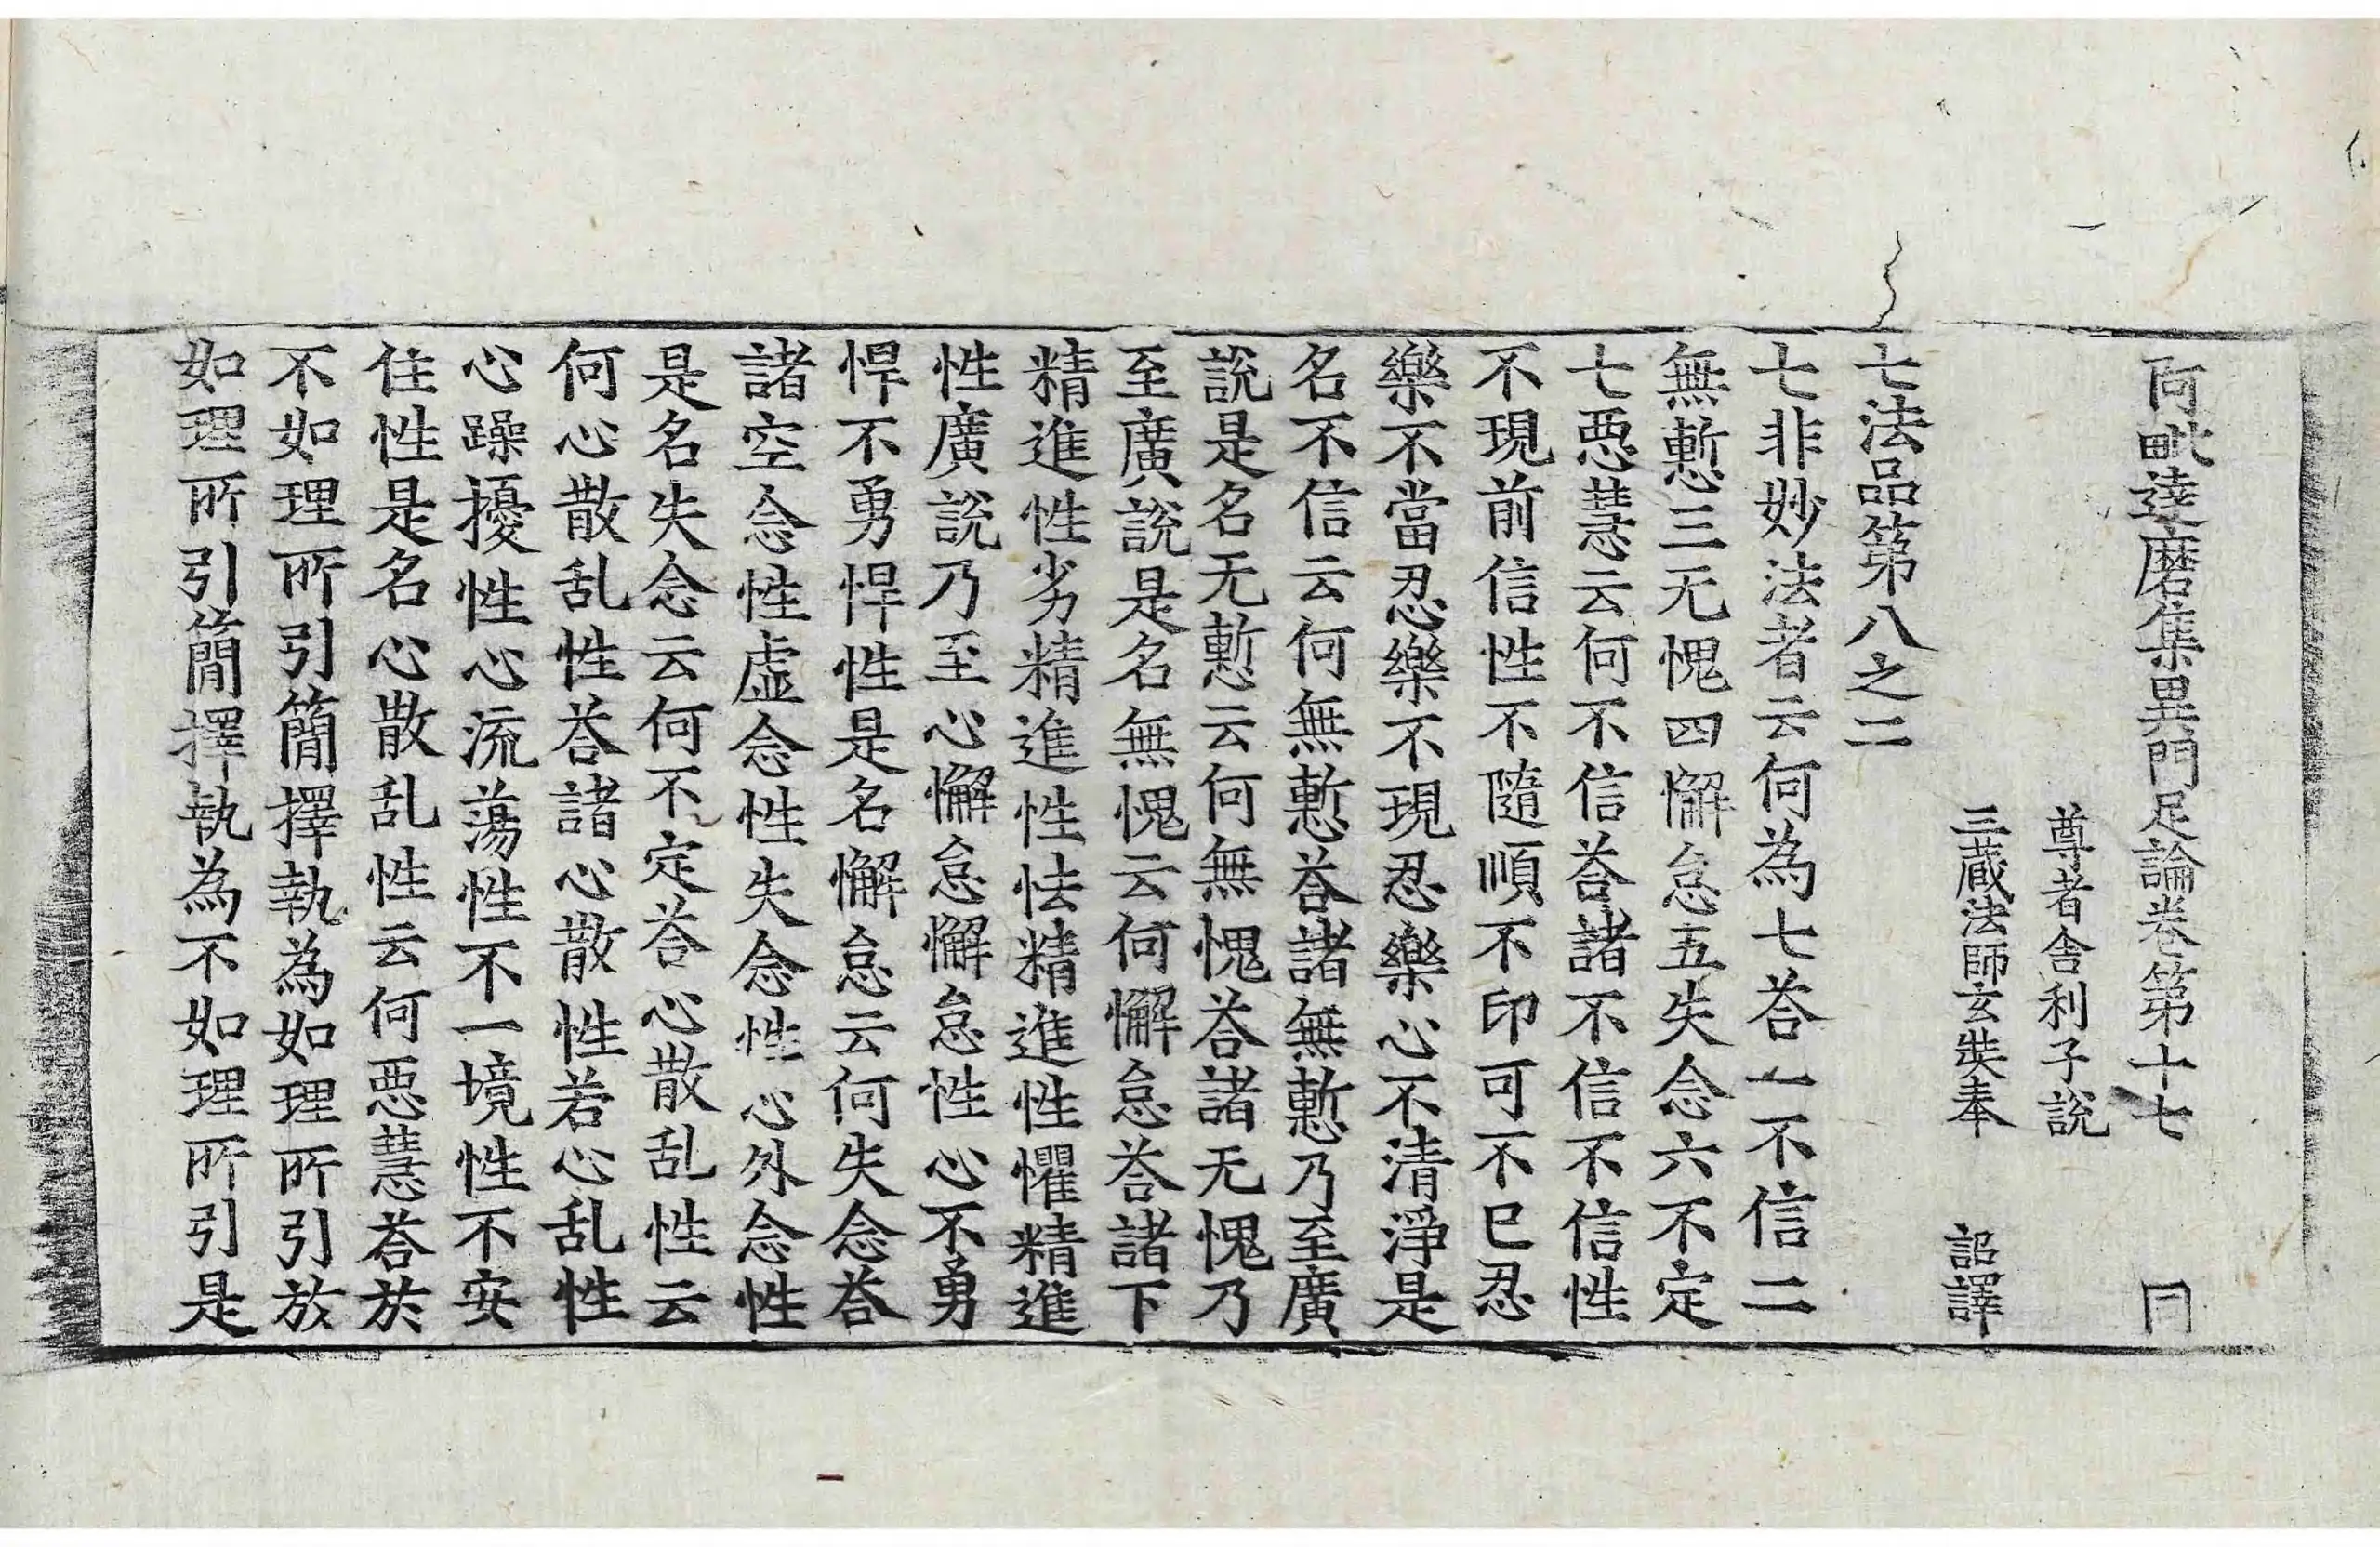 阿毗達磨集異門足論卷第十七 冃
尊者舍利子說
三藏法師玄奘奉 詔譯
七法品第八之二
七非妙法者云何為七荅一不信二
無慙三无愧四懈怠五失念六不定
七惡慧云何不信荅諸不信不信性
不現前信性不隨順不印可不已忍
樂不當忍樂不現忍樂心不清淨是
名不信云何無慙荅諸無慙乃至廣
說是名无慙云何無愧荅諸无愧乃
至廣說是名無愧云何懈怠荅諸下
精進性劣精進性怯精進性懼精進
性廣說乃至心懈怠懈怠性心不勇
悍不勇悍性是名懈怠云何失念荅
諸空念性虛念性失念性心外念性
是名失念云何不定荅心散乱性云
何心散乱性荅諸心散性若心乱性
心躁擾性心流蕩性不一境性不安
住性是名心散乱性云何惡慧荅於
不如理所引簡擇執為如理所引放
如理所引簡擇執為不如理所引是